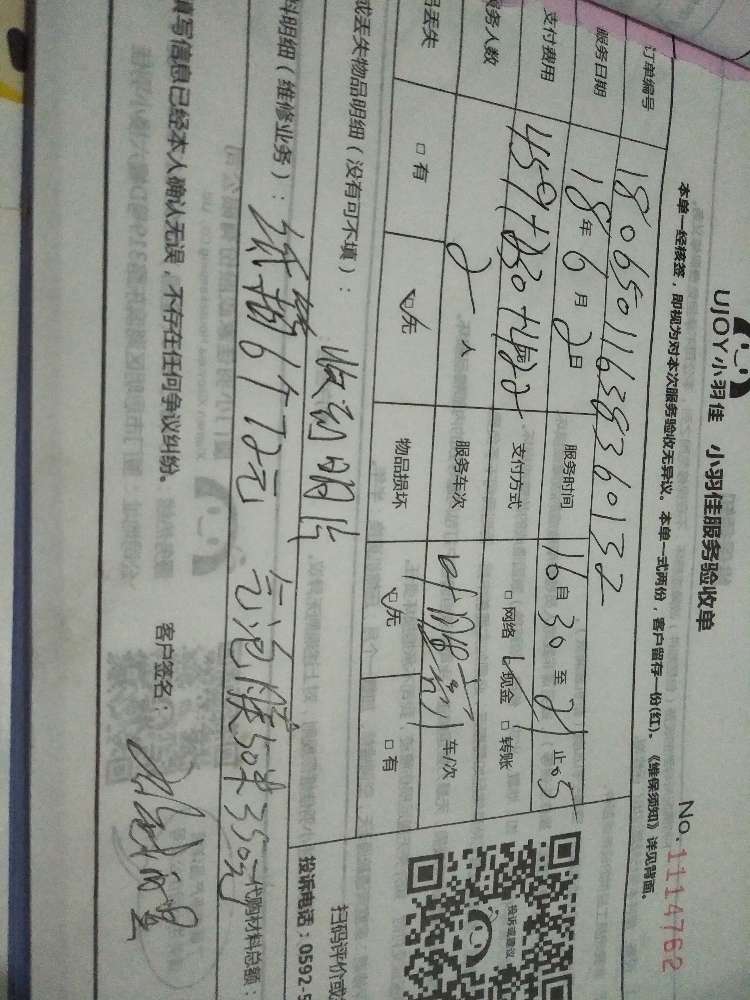 UJOY小羽佳 小羽佳服务验收单
No.1114762
本单一经核签，即视为对本次服务验收无异议。本单一式两份，客户留存一份(红)。《维保须知》详见背面。
订单编号 18065011638360132
服务日期 18年6月2日 服务时间 16自30至21止05
支付费用 支付方式 □网络 ☑现金 □转账
务人数 2人 服务车次 车/次
丢失 □有 ☑无 物品损坏 ☑无 □有
或丢失物品明细（没有可不填）：
收到明片
料明细（维修业务）：纸箱6个72元 气泡膜50米350元 代购材料总额：
填写信息已经本人确认无误，不存在任何争议纠纷。
客户签名：
投诉或建议
扫码评价或
投诉电话：0592-5